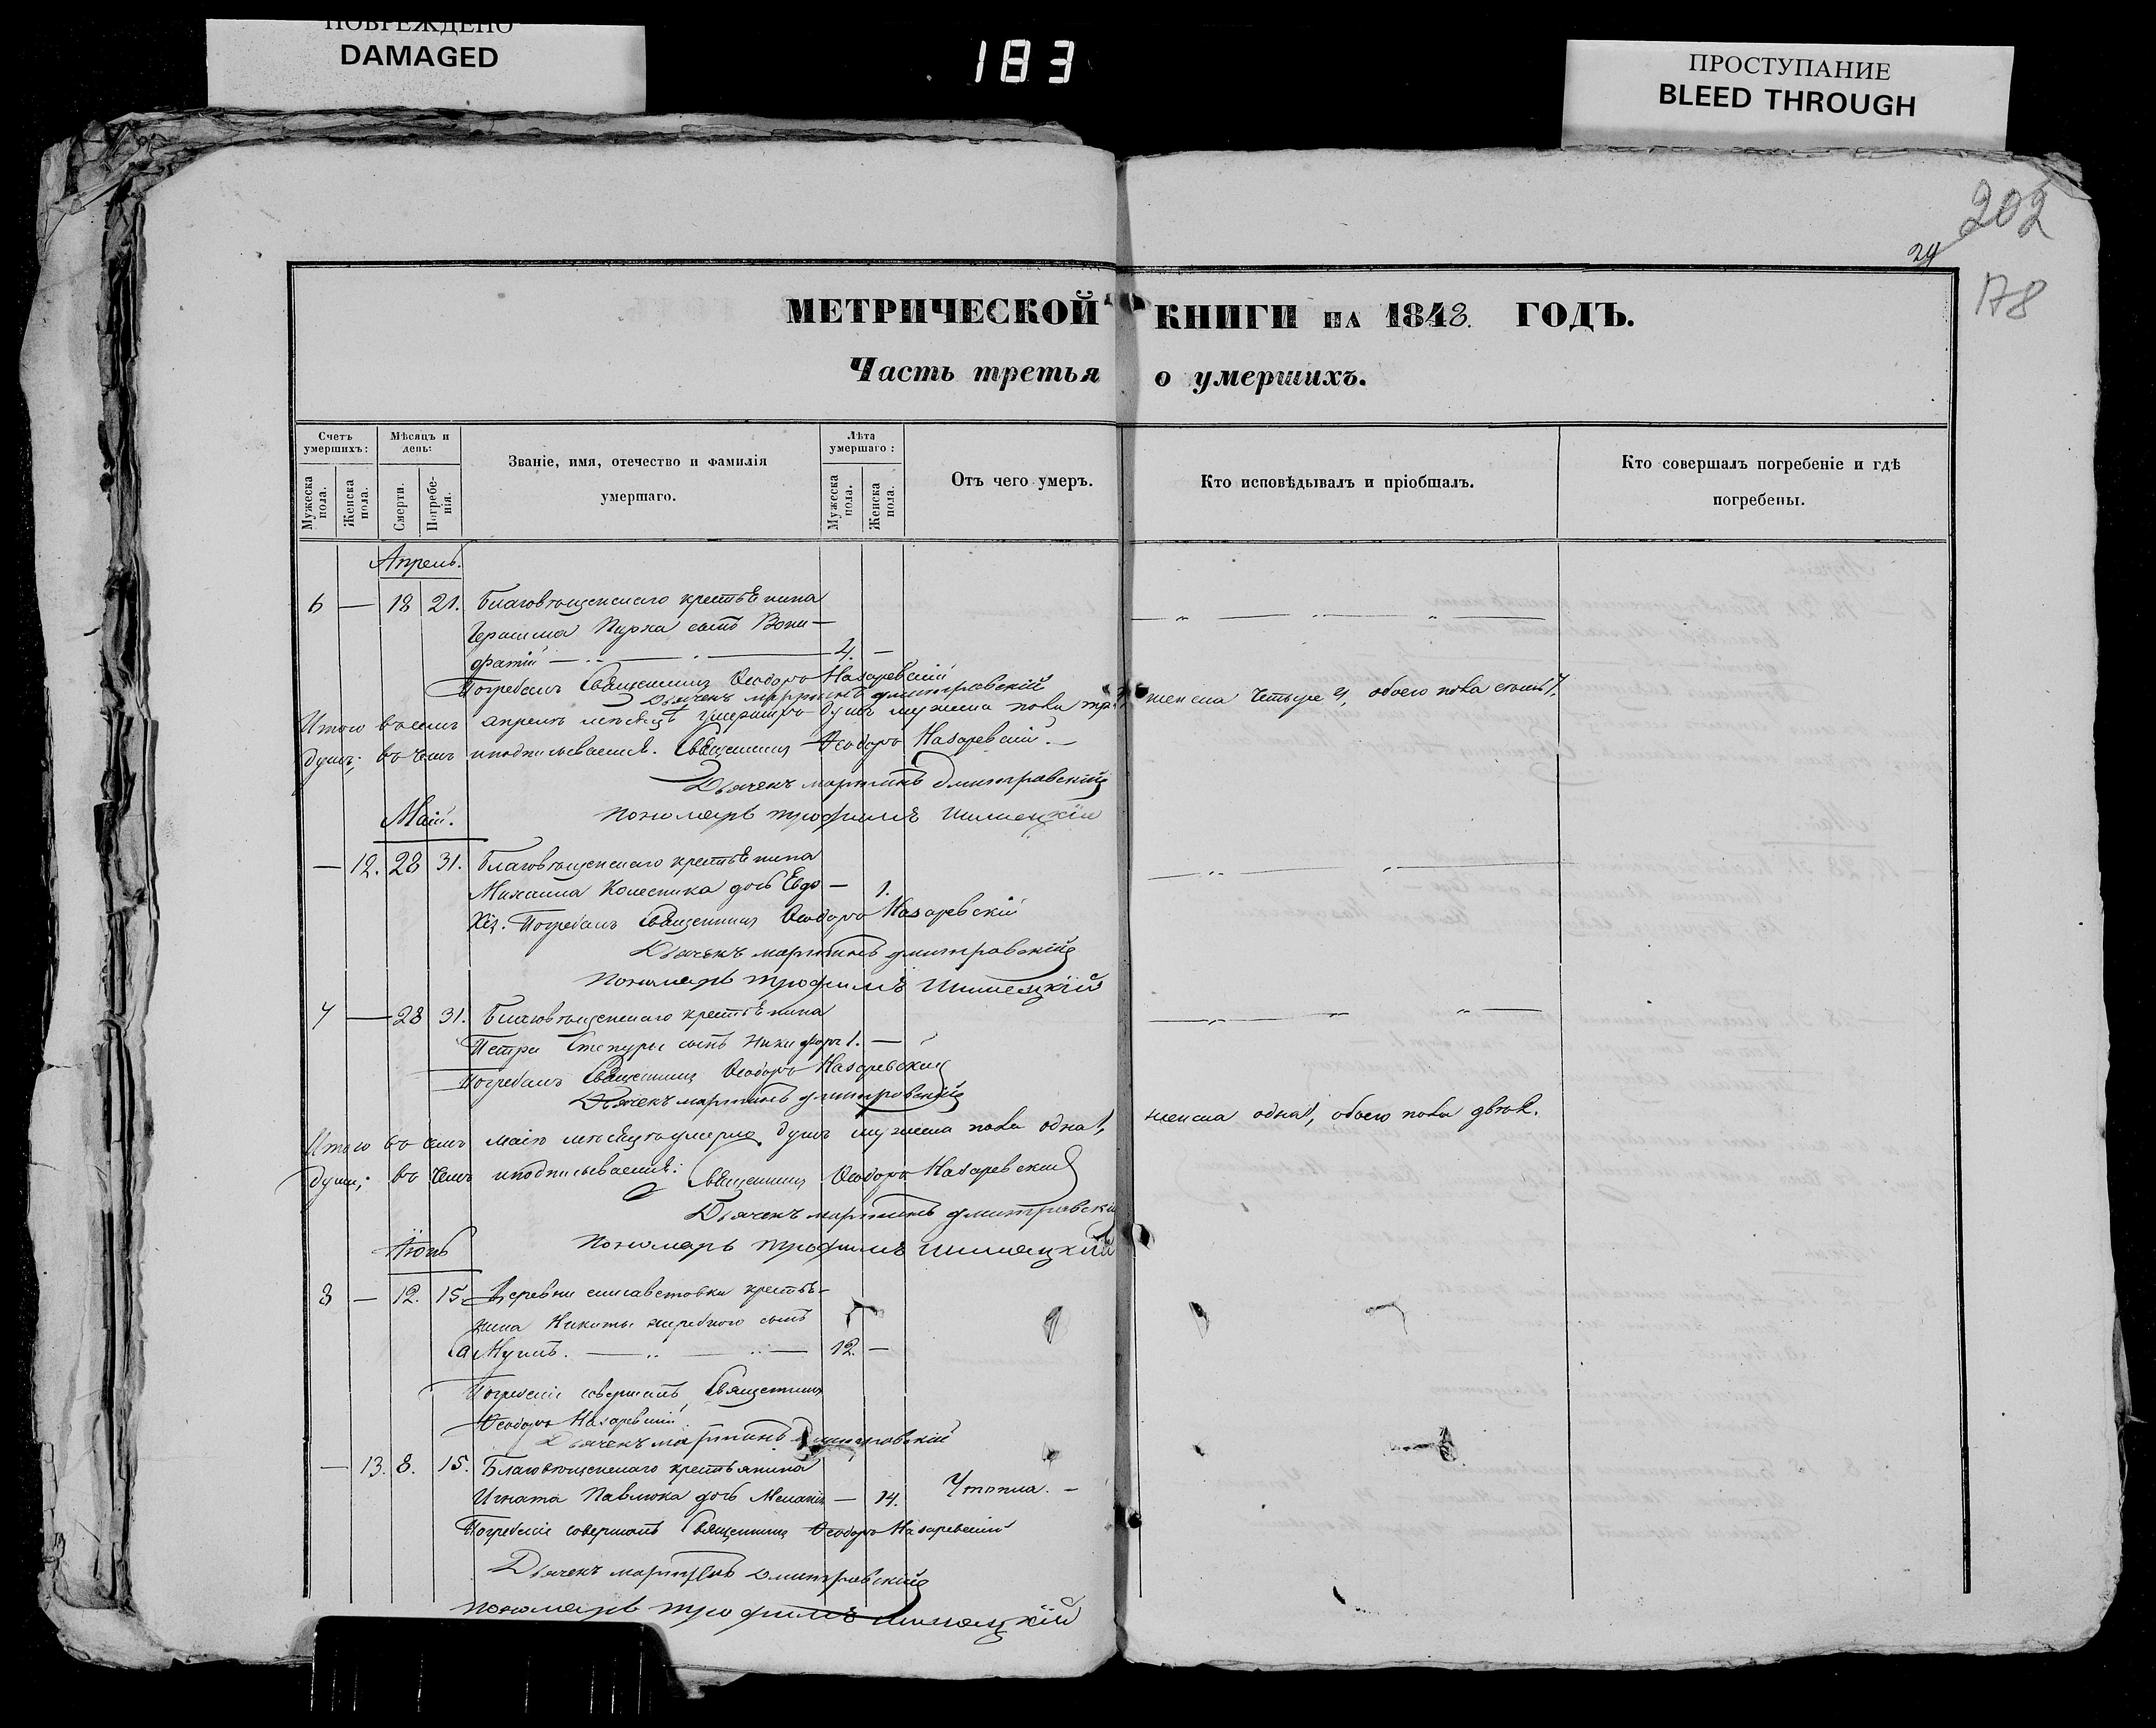 ПОВРЕЖДЕНО
DAMAGED
183
ПРОСТУПАНИЕ
BLEED THROUGH
202
29
178
МЕТРИЧЕСКОЙ КНИГИ НА 1848. ГОДЪ.
Часть третья о умершихъ.
Счетъ умершихъ:
Мужеска пола.
Женска пола.
Мѣсяцъ и день:
Смерти.
Погребенія.
Званіе, имя, отечество и фамилія
умершаго.
Лѣта умершаго:
Мужеска пола.
Женска пола.
Отъ чего умеръ.
Кто исповѣдывалъ и пріобщалъ.
Кто совершалъ погребеніе и гдѣ
погребены.
Апрель.
6 — 18 21. Благовѣщенскаго крестьѣнина
Герасима сынъ Вони-
фатій — 4. —
Погребалъ Священникъ Ѳеодоръ Назаревскій
Дьячекъ мартинъ дмитровскій
Итого въ семъ апрелѣ мѣсяцѣ умершихъ душъ мужеска пола три женска четыре 4, обоего пола семь 7.
душъ; въ чемъ и подписываемся. Священникъ Ѳеодоръ Назаревскій.
Дьячекъ мартинъ Дмитровскій
Маій. пономарь трофимъ
— 12. 28 31. Благовѣщенскаго крестьѣнина
Михаила Колесника дочь Евдо- 1.
кія. Погребалъ Священникъ Ѳеодоръ Назаревскій
Дьячекъ мартинъ дмитровскій
пономарь трофимъ
7 — 28 31. Благовѣщенскаго крестьѣнина
Петра сынъ Никифоръ 1. —
Погребалъ Священникъ Ѳеодоръ Назаревскій
Дьячекъ мартинъ дмитровскій
Итого въ семъ маію мѣсяцѣ умерло душъ мужеска пола одна 1, женска одна 1, обоего пола двѣ 2.
души; въ чемъ и подписываемся: Священникъ Ѳеодоръ Назаревскій
Дьячекъ мартинъ дмитровскій
Іюнь пономарь трофимъ
8 — 12. 15. Деревни елисаветовки крестьѣ-
нина Никиты сынъ
12. —
Погребеніе совершалъ Священникъ
Ѳеодоръ Назаревскій.
Дьячекъ мартинъ Дмитровскій
— 13. 8. 15. Благовѣщенскаго крестьянина
Игната Павлюка дочь Меланія — 14. Утопла. —
Погребеніе совершалъ Священникъ Ѳеодоръ Назаревскій
Дьячекъ мартинъ Дмитровскій
пономарь трофимъ